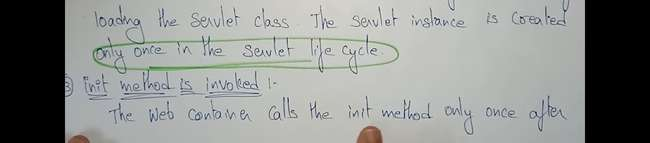 loading the Servlet class. The servlet instance is created
only once in the servlet life cycle.
3) init method is invoked :-
The Web container calls the init method only once after